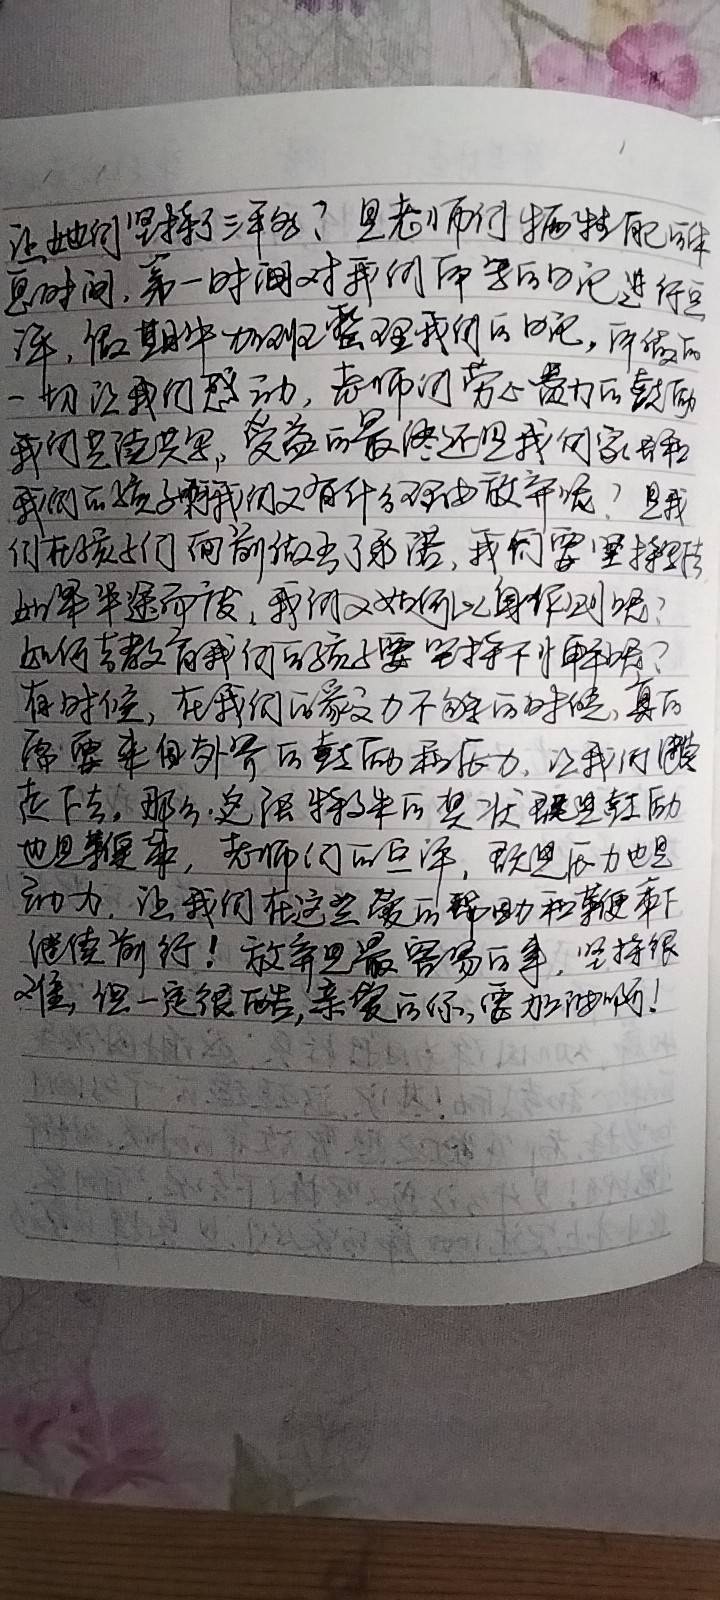 让她们坚持了三年多？是老师们牺牲配休
息时间，第一时间对我们所写的日记进行点
评，假期中加班整理我们的日记，所做的
一切让我们感动，老师们劳心费力的鼓励
我们共读共写，受益的最终还是我们家长和
我们的孩子啊我们又有什么理由放弃呢？是我
们在孩子们面前做出了承诺，我们要坚持
如果半途而废，我们又如何以身作则呢？
如何去教育我们的孩子要坚持不懈呢？
有时候，在我们的毅力不够的时候，真的
需要来自外界的鼓励和压力，让我们
走下去。那么这张特殊的奖状既是鼓励
也是鞭策，老师们的点评，既是压力也是
动力，让我们在这些爱的帮助和鞭策下
继续前行！放弃是最容易的事，坚持很
难，但一定很酷，亲爱的你，要加油啊！